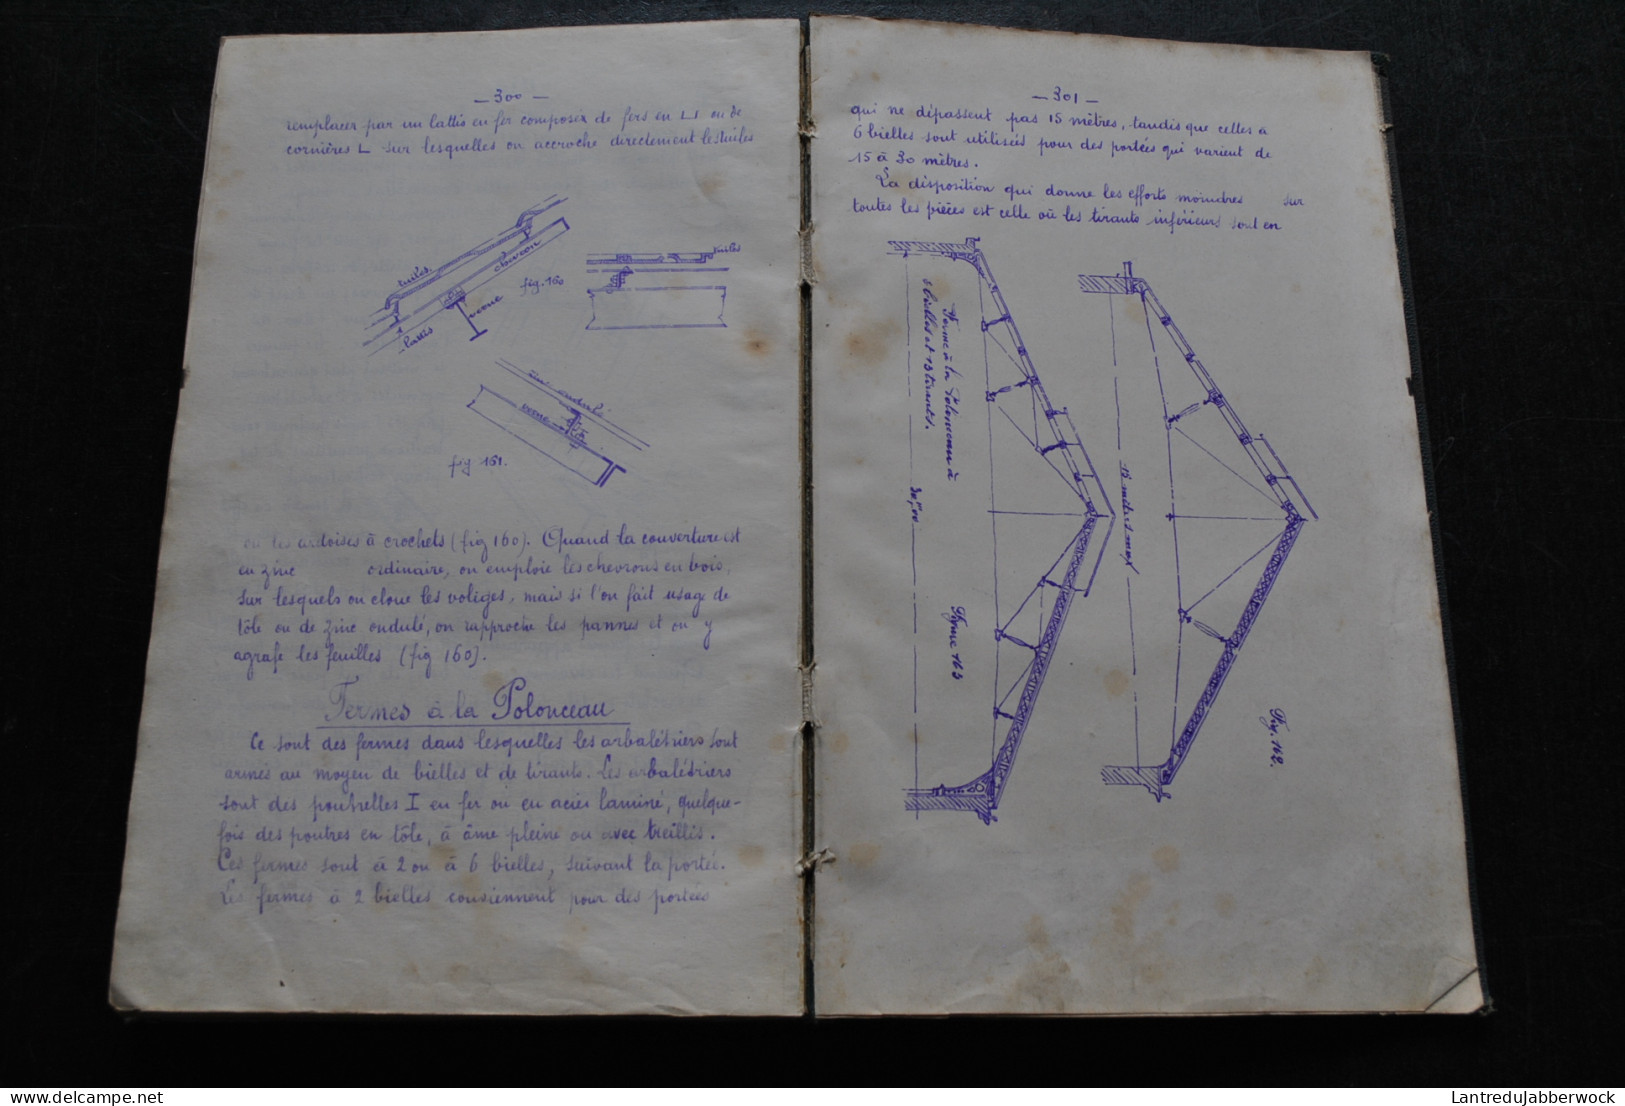 — 300 —
remplacer par un lattis en fer composés de fers en ou de
cornières L sur lesquelles on accroche directement les tuiles
tuiles
chevron
lattis
panne
fig. 160
tuiles
ondulé
panne
fig 161.
ou les ardoises à crochets (fig 160). Quand la couverture est
en zinc ordinaire, on emploie les chevrons en bois,
sur lesquels on cloue les voliges, mais si l'on fait usage de
tôle ou de zinc ondulé, on rapproche les pannes et on y
agrafe les feuilles (fig 160).
Fermes à la Polonceau
Ce sont des fermes dans lesquelles les arbalétriers sont
armés au moyen de bielles et de tirants. Les arbalétriers
sont des poutrelles I en fer ou en acier laminé, quelque-
fois des poutres en tôle, à âme pleine ou avec treillis.
Ces fermes sont à 2 ou à 6 bielles, suivant la portée.
Les fermes à 2 bielles conviennent pour des portées
— 301 —
qui ne dépassent pas 15 mètres, tandis que celles à
6 bielles sont utilisées pour des portées qui varient de
15 à 30 mètres.
La disposition qui donne les efforts moindres sur
toutes les pièces est celle où les tirants inférieurs sont en
Ferme à la Polonceau à
bielles et 13 tirants.
30,00
Figure 163
15 mètres max
Fig. 162.
LantreduJabberwock